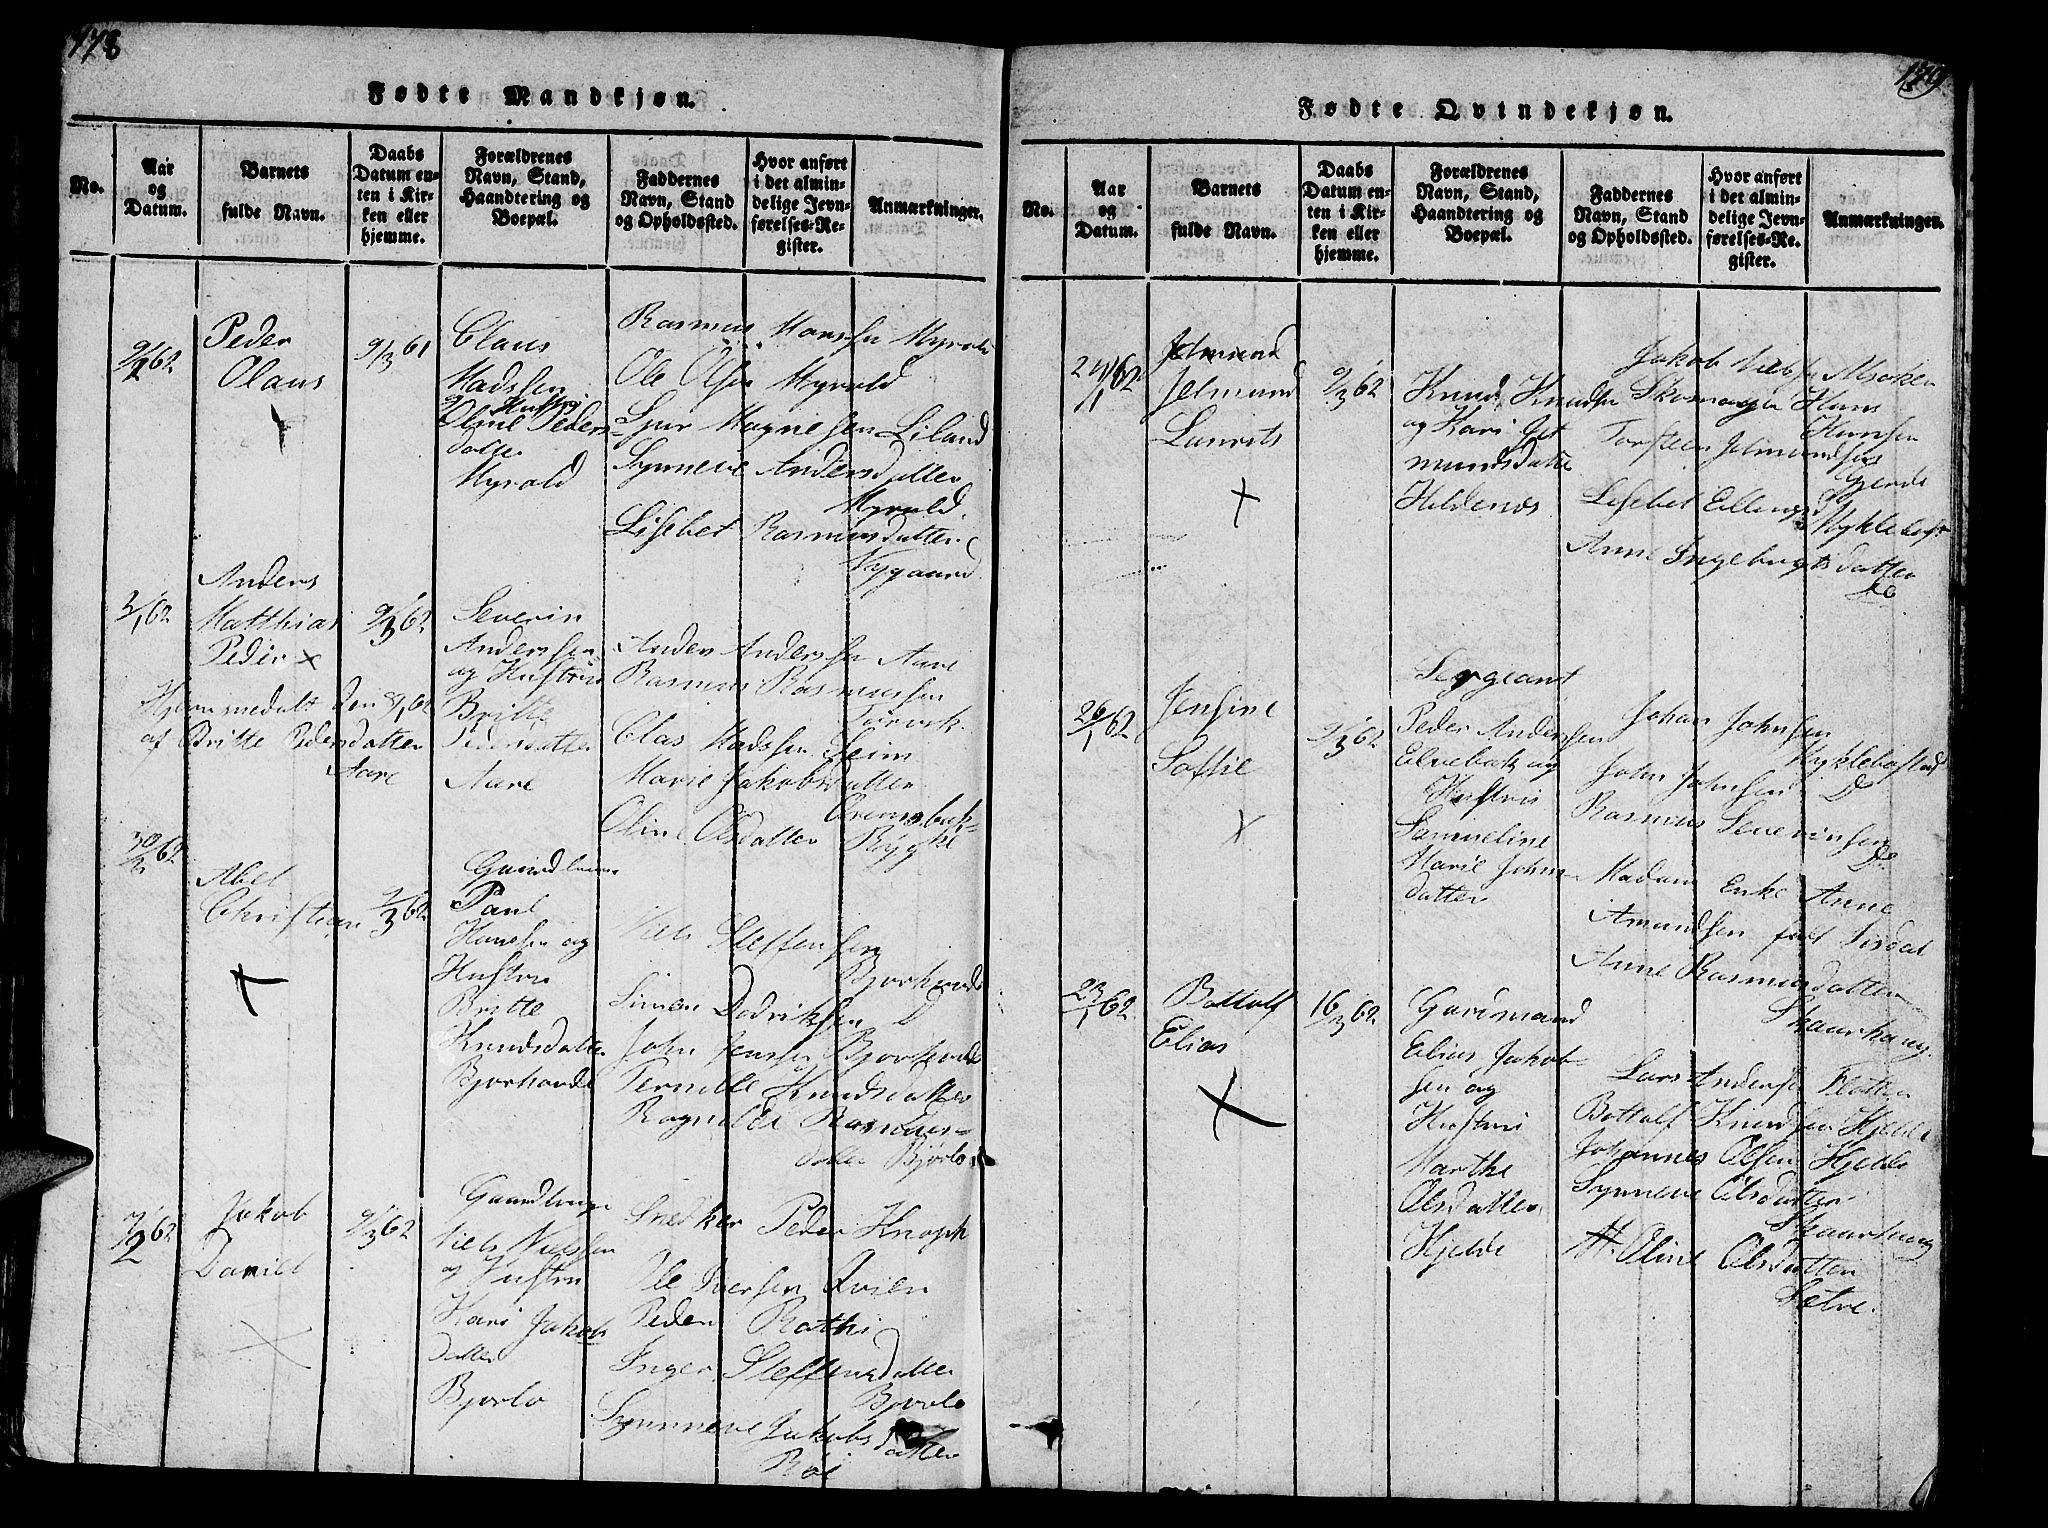 178
Fødte Mandkjøn.
No.
Aar og Datum.
Barnets fulde Navn.
Daabs Datum enten i Kirken eller hjemme.
Forældrenes Navn, Stand, Haandtering og Boepæl.
Faddernes Navn, Stand og Opholdssted.
Hvor anført i det almindelige Jevnførelses-Register.
Anmærkninger.
9/2 62
Peder
Olaus
9/3 61
Claus
Madssen
og Hustru
Oline Peders
datter
Myrold
Rasmus Hanssen Myrold
Ole Olsen Myrold
Sjur Magnesen Liland
Synneve Andersdatter
Myrold
Lisebet Rasmusdatter
Nygaard
3/1 62
Anders
Matthias
Peder x
Hjemmedøbt den 8/1 62
af Britte Pedersdatter
Aare
9/3 62
Severin
Anderssen
og Hustru
Britte
Pedersdatter
Aare
Anders Anderssen Aare
Rasmus Rasmussen
Clas Madssen Seim
Marie Jakobsdatter
Oline Olsdatter Ryg
62
Abel
Christian
9/3 62
Paul
Hanssen og
Hustru
Britte
Knudsdatter
Bjorhovde
Niels Steffensen
Bjorhovde
Simen Didriksen D
John Jenssen Bjorhovde
Pernille Knudsdatter
Ragnilde Rasmus-
datter Bjørlo
7/2 62
Jakob
Daniel
9/3 62
Niels Nielssen
og Hustru
Kari Jakobs
datter
Bjorlo
Snedker Peder Knoph
Ole Iversen Qvien
Peder Rothi
Inger Steffensdatter
Bjorlo
Synneve Jakobsdatter
179
Fødte Qvindekjøn.
No.
Aar og Datum.
Barnets fulde Navn.
Daabs Datum enten i Kirken eller hjemme.
Forældrenes Navn, Stand, Haandtering og Boepæl.
Faddernes Navn, Stand og Opholdssted.
Hvor anført i det almindelige Jevnførelses-Register.
Anmærkninger.
24/1 62
Jetmund
Jetmund
Laurits
9/3 62
Knud Knudsen
og Kari Jet
mundsdatter
Hildenes
Jakob
Skomager Hans
Hansen
Torsteen Jetmundsen
Gjerde
Lisebet Ellings
Myklebost
Anne Ingebrigtsdatter
do
26/1 62
Jensine
Soffie
9/3 62
Sergeant
Peder Andersen
Elvebak og
Hustru
Samueline
Marie Johns
datter
Johan Johnsen
Myklebostad
John Johnsen D
Rasmus Severinsen
Do
Madam Enke Anne
Amundsen født
Anne Rasmusdatter
Skaarhaug
23/1 62
Bottolf
Elias
16/3 62
Gardmand
Elias Jakob-
sen og
Hustru
Marthe
Olsdatter
Hjelle
Lars Andersen
Bottolf Knudsen Hjelle
Johannes Olsen Hjelle
Synneve Olsdatter
Skaarhaug
Oline Olsdatter
Sætre.